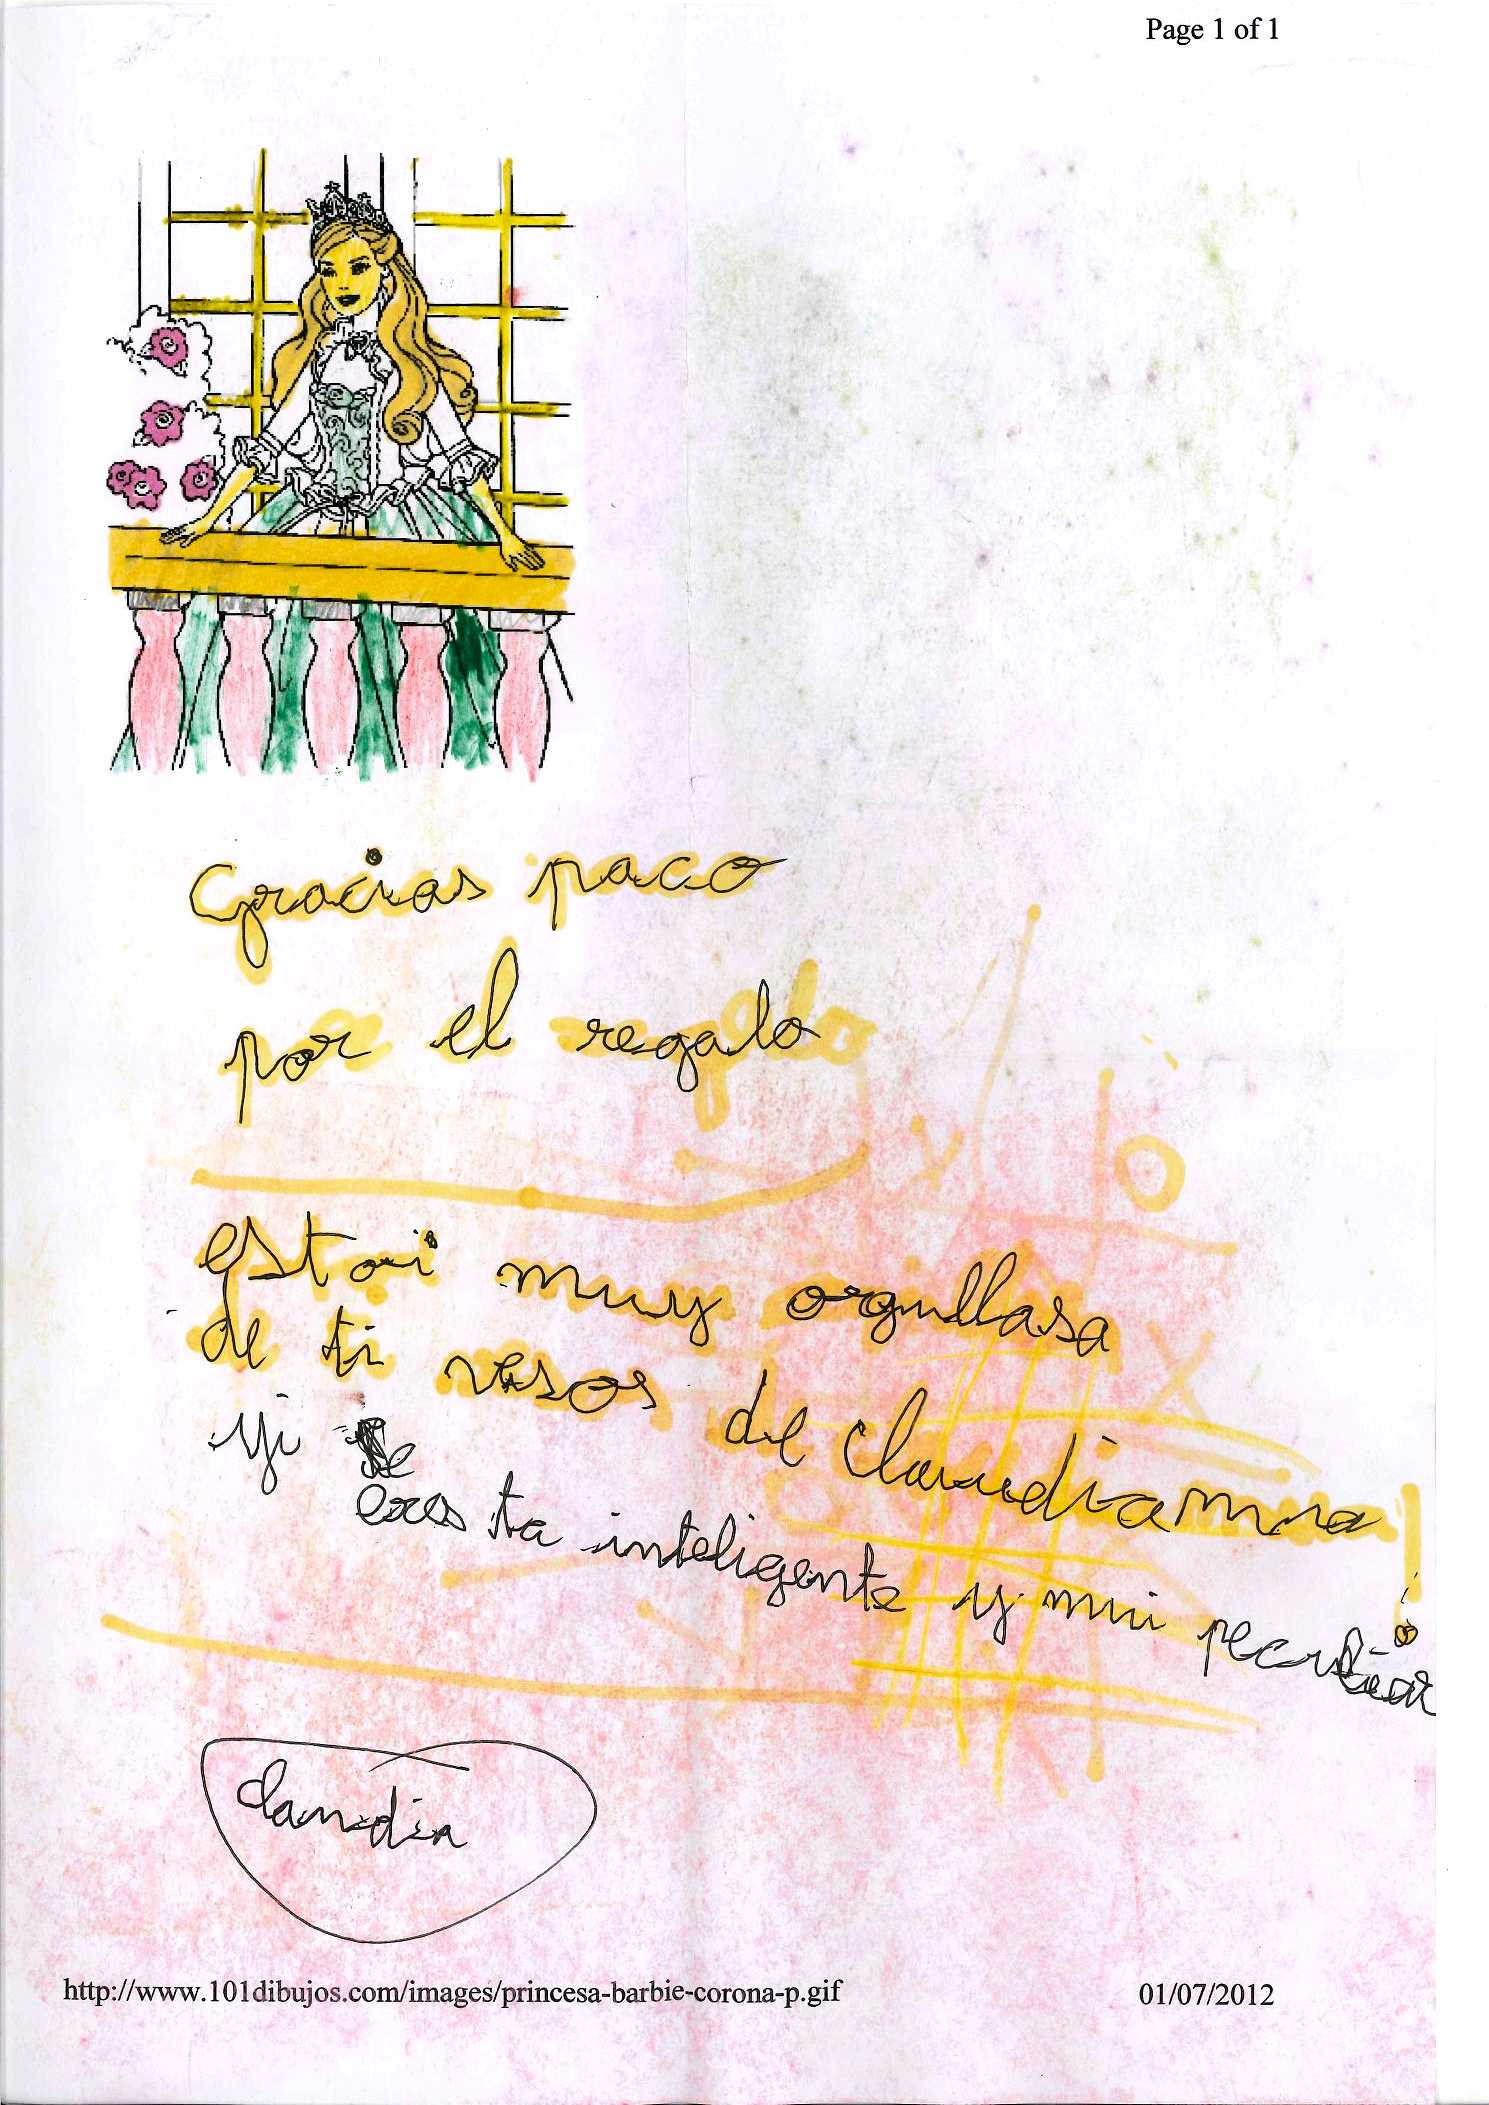 Page 1 of 1
Gracias paco
por el regalo
estoi muy orgullasa
de ti vesos de claudia
yi
eres ta inteligente y mui
claudia
http://www.101dibujos.com/images/princesa-barbie-corona-p.gif
01/07/2012